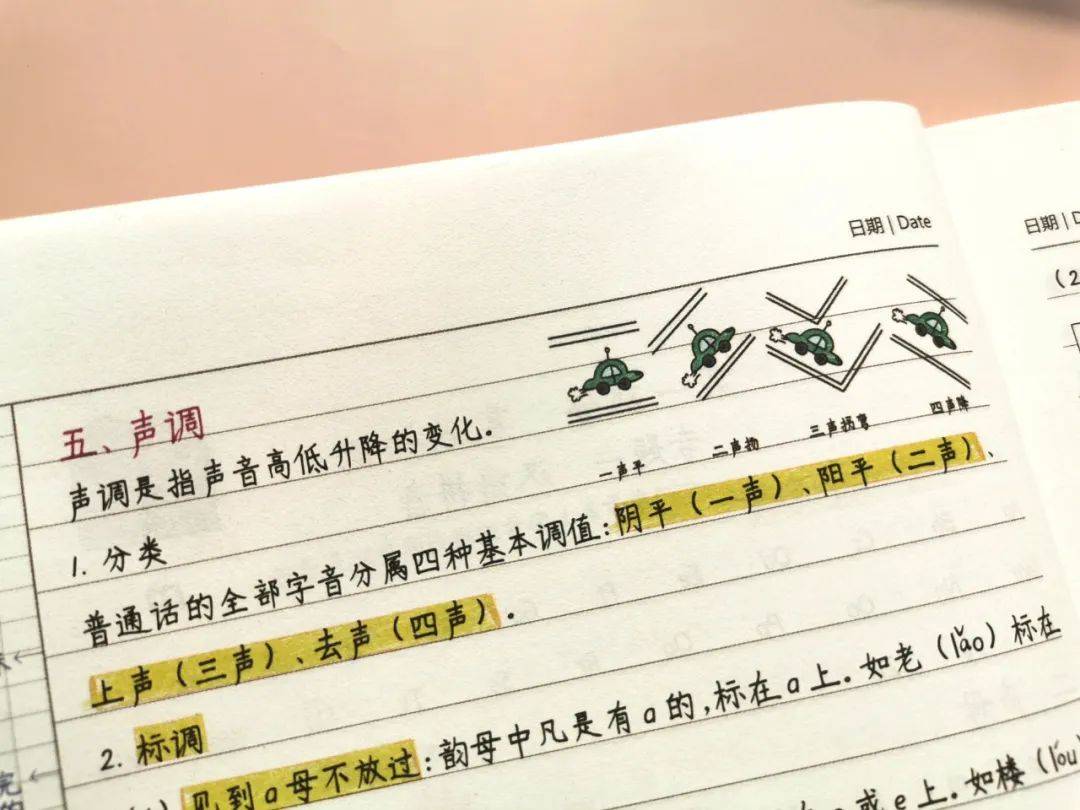 日期 | Date
日期 |
(2
五、声调
声调是指声音高低升降的变化.
一声平 二声扬 三声拐弯 四声降
1. 分类
普通话的全部字音分属四种基本调值:阴平(一声)、阳平(二声)、
上声(三声)、去声(四声).
2. 标调
见到a母不放过:韵母中凡是有a的,标在a上.如老(lǎo)标在
或e上.如楼(lóu